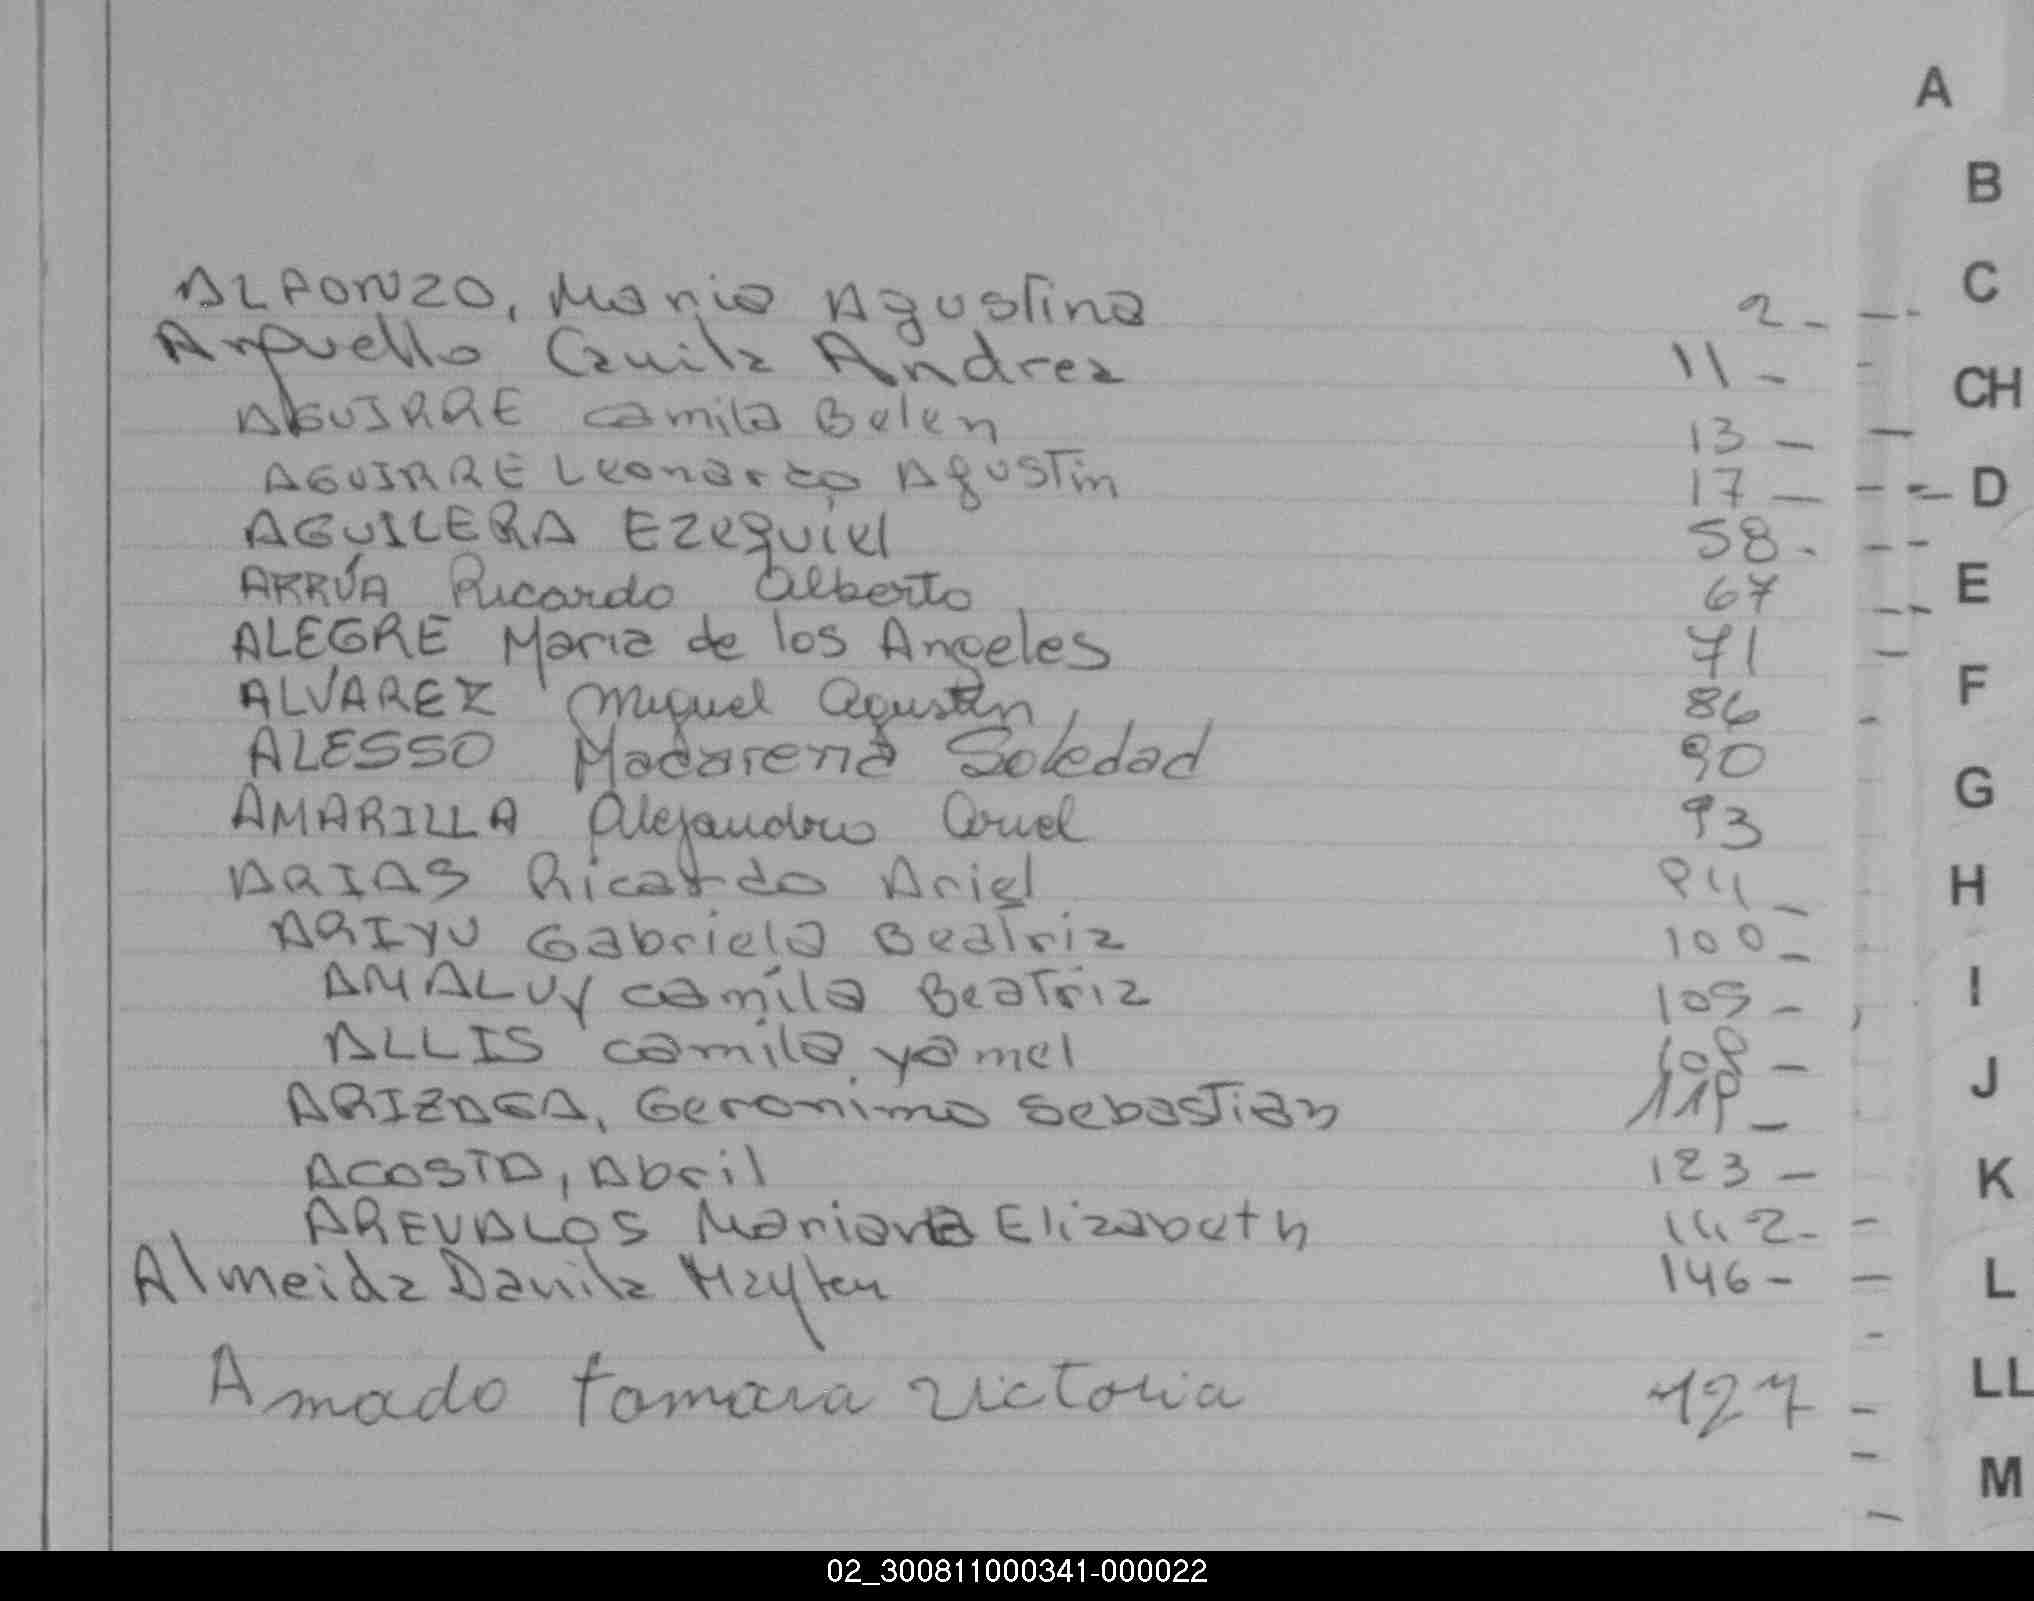 A
B
C
ALFONZO, Maria Agustina 2 -
Arguello Camila Andrea 11 -
CH
AGUIRRE camila Belen 13 -
AGUIRRE Leonardo Agustin 17 -
D
AGUILERA Ezequiel 58 -
E
ARRÚA Ricardo Alberto 67
ALEGRE Maria de los Angeles 71
F
ALVAREZ Miguel Agustín 86
ALESSO Macarena Soledad 90
G
AMARILLA Alejandro Ariel 93
H
ARIAS Ricardo Ariel 94 -
ARIYU Gabriela Beatriz 100 -
I
AMALUY camila Beatriz 105 -
ALLIS camila yamel 108 -
J
ARIZAGA, Geronimo Sebastian 119 -
K
ACOSTA, Abril 123 -
AREVALOS Mariana Elizabeth 142 -
L
Almeida Danila Maylen 146 -
LL
Amado tamara victoria 127
M
02_300811000341-000022